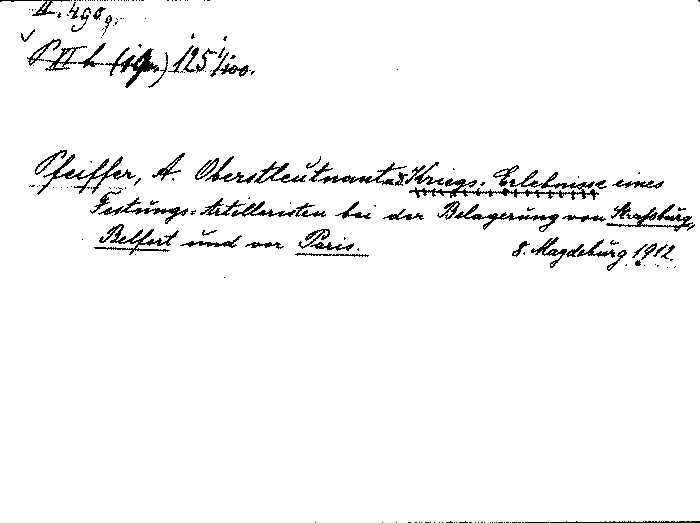 II. 490 g.
P II h (ig.) 125 1/100.
Pfeiffer, A. Oberstleutnant a.D. Kriegs-Erlebnisse eines
Festungs-Artilleristen bei der Belagerung von Straßburg,
Belfort und vor Paris. 8. Magdeburg 1912.